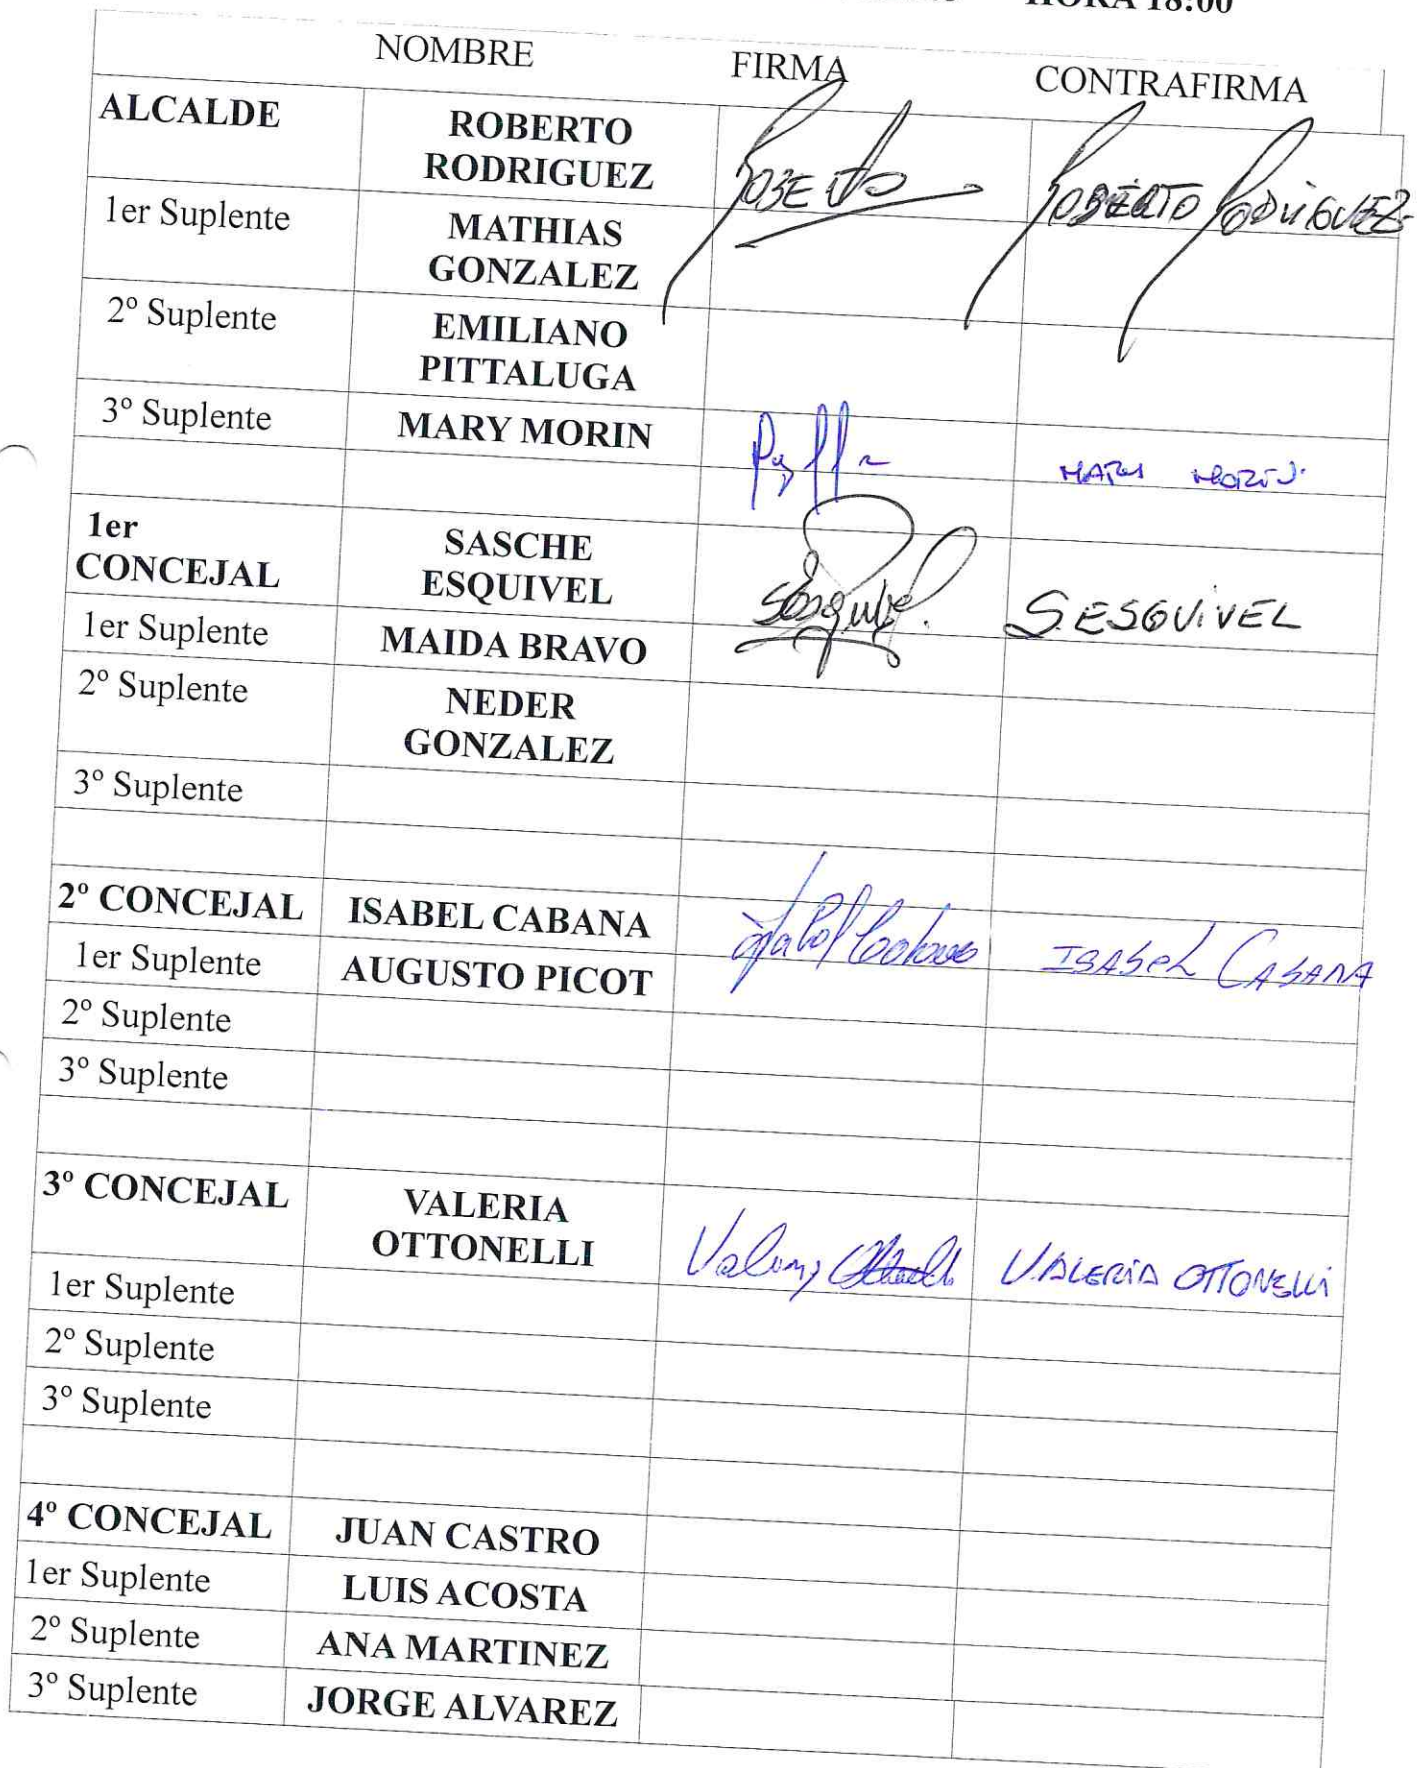 HORA 18:00
NOMBRE FIRMA CONTRAFIRMA
ALCALDE ROBERTO RODRIGUEZ ROBERTO ROBERTO RODRIGUEZ
1er Suplente MATHIAS GONZALEZ
2º Suplente EMILIANO PITTALUGA
3º Suplente MARY MORIN MARY MORIN
1er CONCEJAL SASCHE ESQUIVEL SEsquivel. S.ESQUIVEL
1er Suplente MAIDA BRAVO
2º Suplente NEDER GONZALEZ
3º Suplente
2º CONCEJAL ISABEL CABANA Isabel Cabana ISABEL CABANA
1er Suplente AUGUSTO PICOT
2º Suplente
3º Suplente
3º CONCEJAL VALERIA OTTONELLI Valeria Ottonelli VALERIA OTTONELLI
1er Suplente
2º Suplente
3º Suplente
4º CONCEJAL JUAN CASTRO
1er Suplente LUIS ACOSTA
2º Suplente ANA MARTINEZ
3º Suplente JORGE ALVAREZ